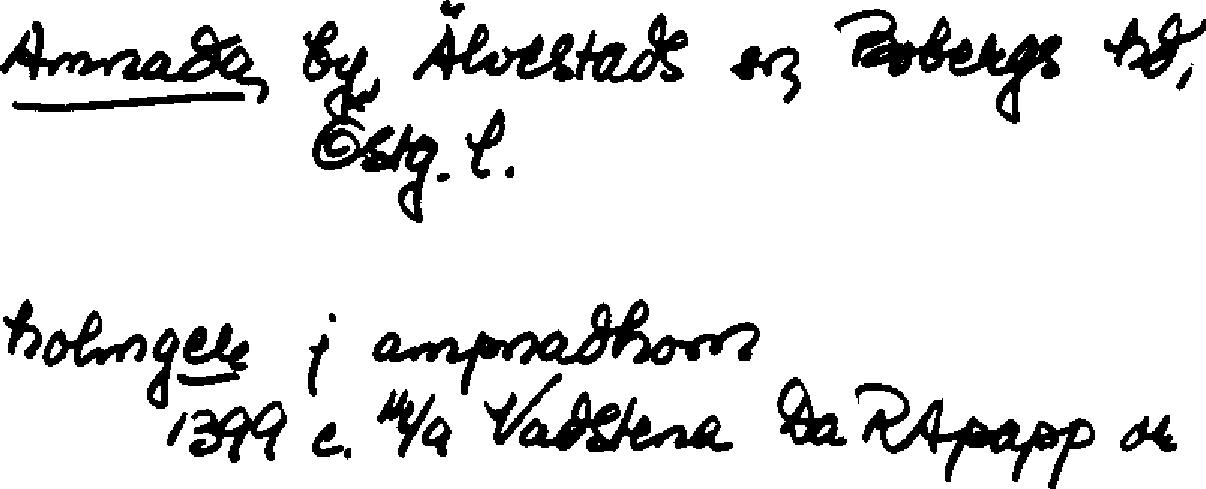 Amnada, by, Älvestads sn, Bobergs hd,
Östg. l.
holmgere j ampnadhom
1399 c. 14/9 Vadstena Da RApapp or